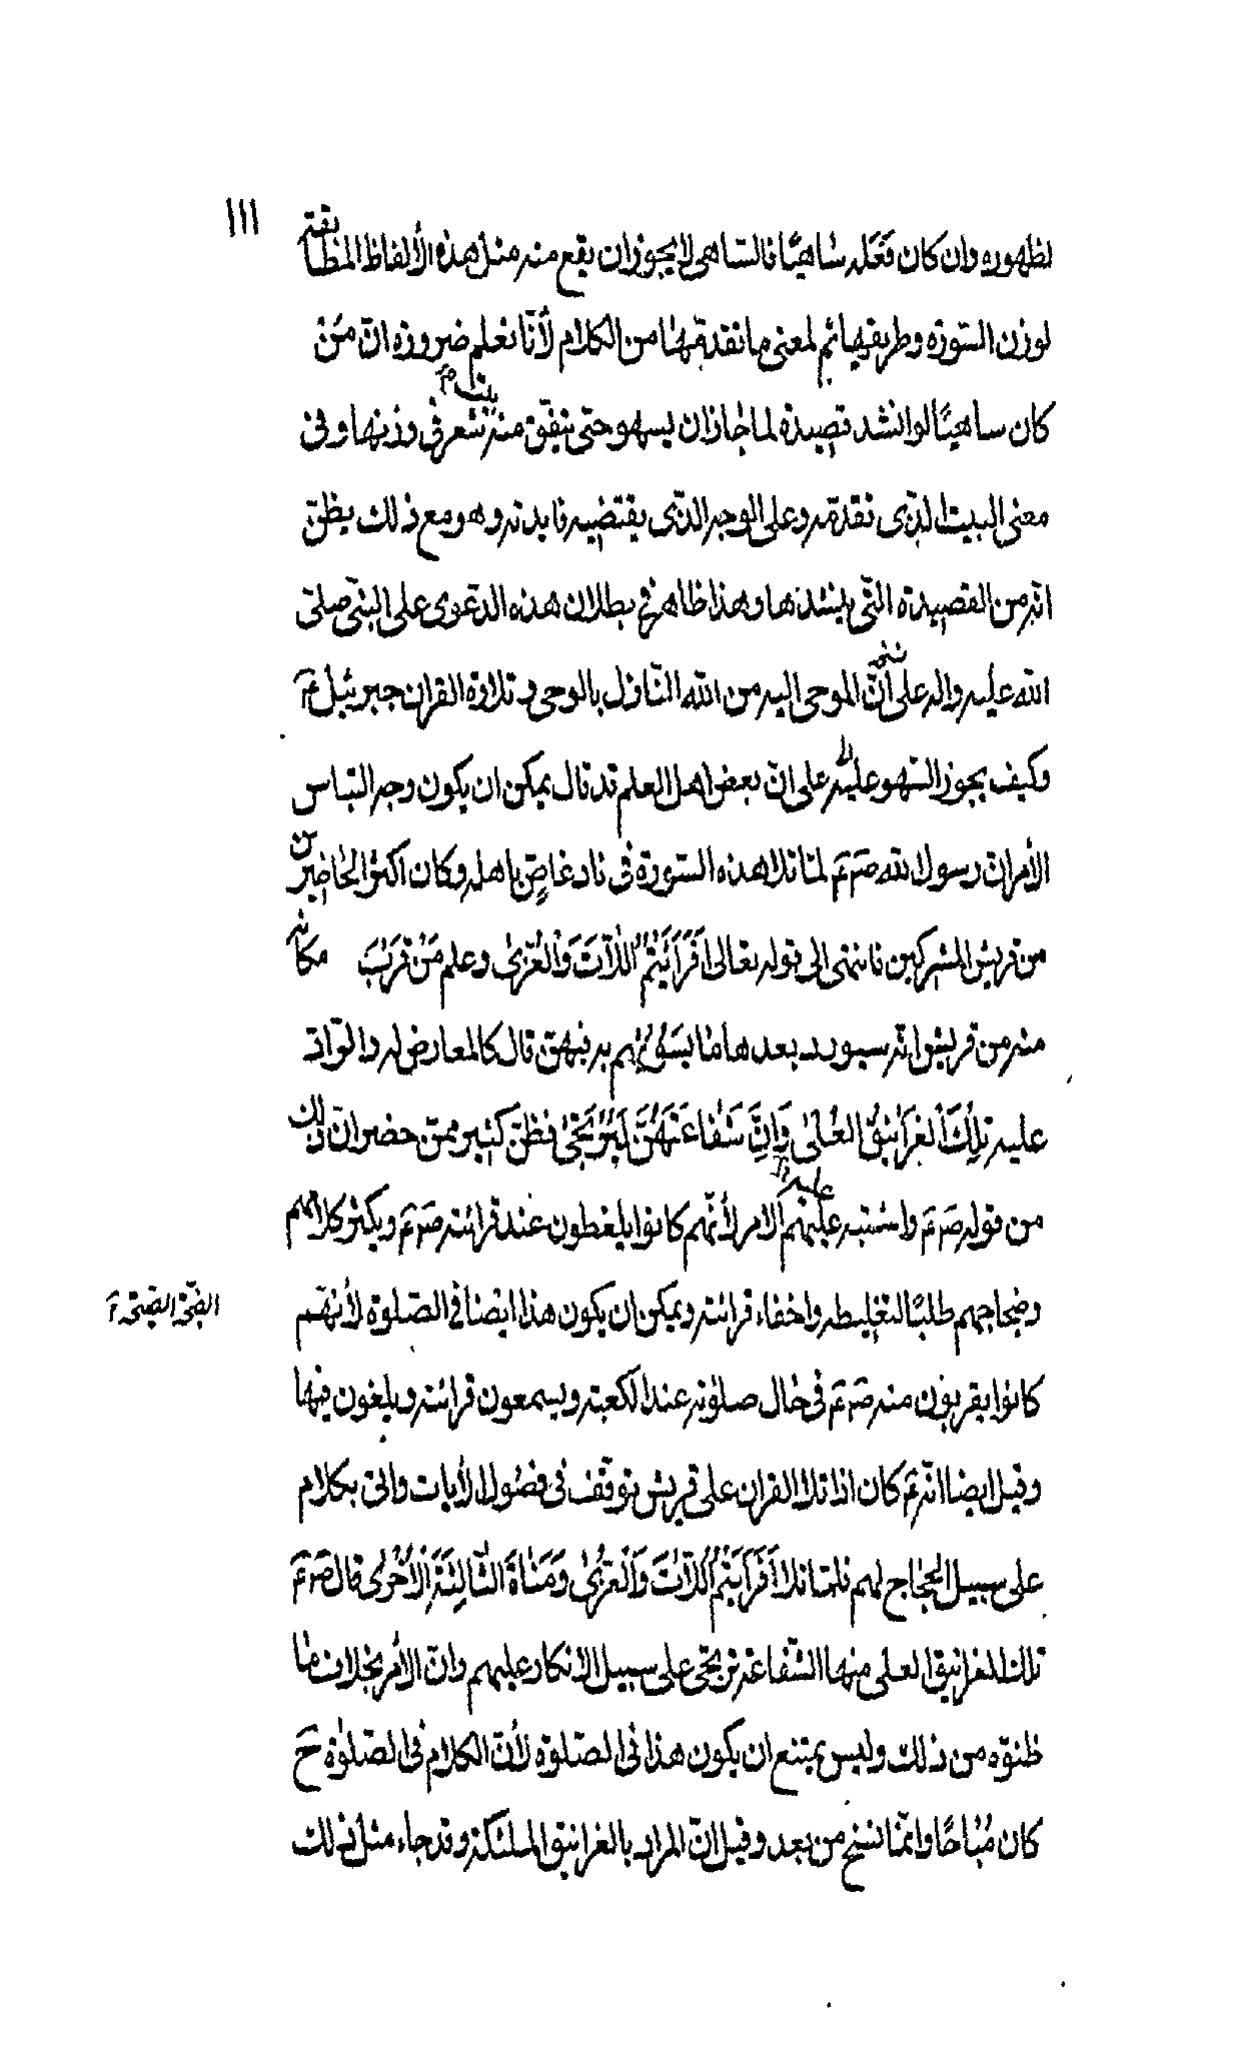 ١١١
لظهوره وان كان فَعَله ساهيًا فالساهى لا يجوز ان يقع منه مثل هذه الألفاظ المطابقة
لوزن السّورة وطريقها ثم لمعنى ما تقدمّها من الكلام لأنّا نعلم ضرورة انّ مَنْ
كان ساهيًا لو انشد قصيدة لما جاز ان يسهو حتى يتفّق منه بيت شعر فى وزنها وفى
معنى البيت الذّى تقدمّه وعلى الوجه الذّى يقتضيه فايدته وهو مع ذلك يظنّ
انّه من القصيدة التّى ينشدها وهذا ظاهر فى بطلان هذه الدعوى على النبّى صلىّ
الله عليه واله على انّ الموحى اليه من الله النّازل بالوحى وتلاوة القران جبرئيل عَ
وكيف يجوز السّهو عليه على انّ بعض اهل العلم قد قال يمكن ان يكون وجه التباس
الأمر انّ رسول الله صَ عَ لمّا تلا هذه السّورة فى نادٍ غاصٍّ باهله وكان اكثر الحاضرين
من قريش المشركين فانتهى الى قوله تعالى اَفَرَاَيْتُمُ اللّاتَ وَالْعُزّىٰ وعلم مَنْ قَرَبَ مكانه
منه من قريش انّه سيورد بعدها ما يسَؤُهم به فيهنّ قال كالمعارض له والرّادّ
عليه تِلْكَ الْغَرَانِيقُ العُلىٰ وَاِنَّ شَفٰاعَتَهُنَّ لَتُرْتَجىٰ فظنّ كثير ممنّ حضر انّ ذلك
من قوله صَ عَ واشتبه عليهم الامر لأنّهم كانوا يلغطون عند قرائته صَ عَ ويكثر كلامهم
وضجاجهم طلبًا لتغليطه واخفاء قرائته ويمكن ان يكون هذا ايضا فى الصّلوة لأنهّم
كانوا يقربون منه صَ عَ فى حال صلوته عند الكعبة ويسمعون قرائته ويلغون فيها
وقيل ايضا انّه عَ كان اذا تلا القران على قريش توقّف فى فصول الأيات واتى بكلام
على سبيل الحجاج لهم فلمّا تلا اَفَرَاَيْتُمُ اللّاتَ وَالْعُزّىٰ وَمَنٰاةَ الثّالِثَةَ الْاُخْرىٰ قال صَ عَ
تلك الغرانيق العلى منها الشّفاعة ترتجى على سبيل الانكار عليهم وانّ الأمر بخلاف ما
ظنوّه من ذلك وليس يمتنع ان يكون هذا فى الصّلوة لأنّ الكلام فى الصّلوٰة حَ
كان مُبٰاحًا وانمّا نسخ من بعد وقيل انّ المراد بالغرانيق الملئكة وقد جاء مثل ذلك